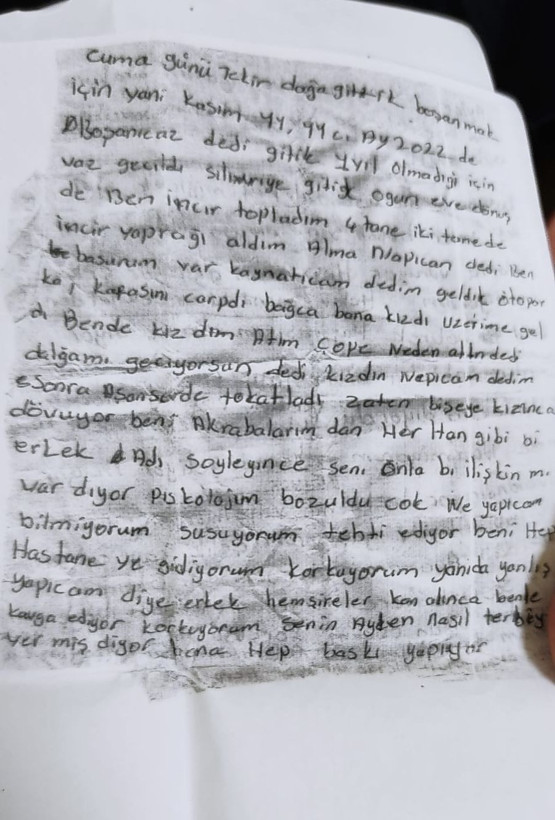 Cuma günü Tekir dağa gittik boşanmak
için yani Kasım 44, 44 c. Ay 2022 de
Boşanıcaz dedi gitik 1yıl olmadığı için
vaz geçildi silivriye gitik ogun eve dönüş
de Ben incir topladım 4 tane iki tanede
incir yaprağı aldım Alma Napıcan dedi Ben
basurum var kaynatıcam dedim geldik otopar
ka, kapasını carpdi bağca bana kızdı üzerime gel
di Bende kız dım Atım Çöpe Neden attın dedi
dalğamı geçiyorsun dedi kızdın Nepican dedim
Sonra Asansörde tokatladı zaten bişeye kızınca
dövuyor beni Akrabalarım dan Her Han gibi bi
erkek Adı soyleyınce seni onla bi ilişkin mi
var diyor piskolojim bozuldu cok Ne yapıcam
bilmiyorum susuyorum tehti ediyor beni Hep
Hastane ye gidiyorum korkuyorum yanıda yanlış
yapıcam diye erkek hemşireler kan alınca benle
kavga ediyor korkuyorum Senin Ayben nasıl terbiy
ver miş diyor bana Hep baskı yapıyor